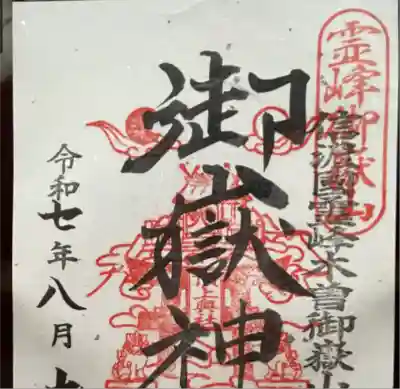 霊峰御嶽山
信濃國霊峰木曽御嶽
御嶽神
令和七年八月